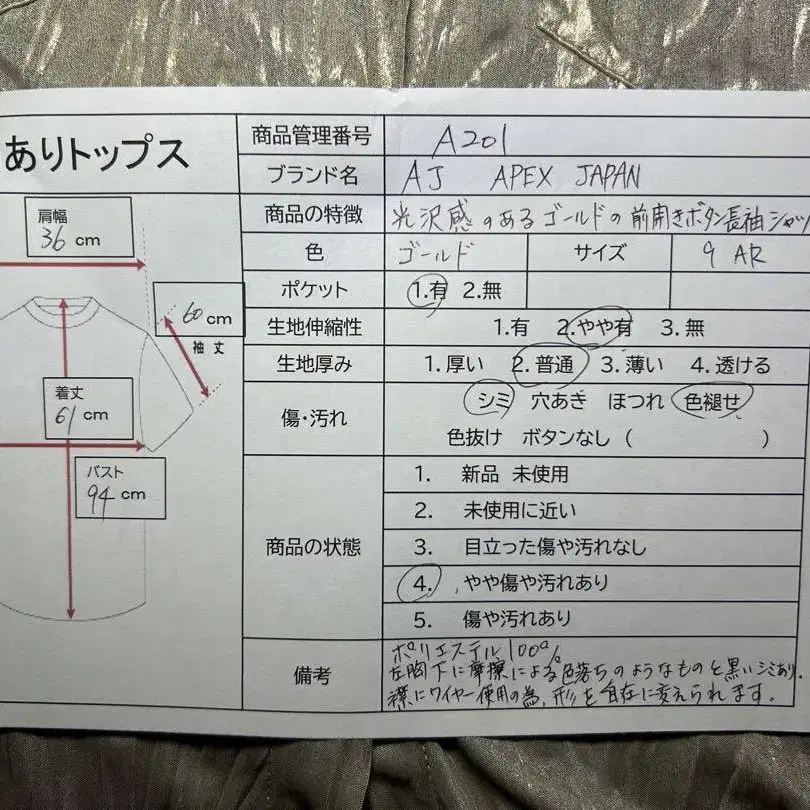 ありトップス
肩幅
36 cm
60 cm
袖丈
着丈
61 cm
バスト
94 cm
商品管理番号 A201
ブランド名 AJ APEX JAPAN
商品の特徴 光沢感のあるゴールドの前開きボタン長袖シャツ
色 ゴールド サイズ 9 AR
ポケット 1.有 2.無
生地伸縮性 1.有 2.やや有 3.無
生地厚み 1.厚い 2.普通 3.薄い 4.透ける
傷・汚れ シミ 穴あき ほつれ 色褪せ
色抜け ボタンなし ( )
商品の状態 1. 新品 未使用
2. 未使用に近い
3. 目立った傷や汚れなし
4. やや傷や汚れあり
5. 傷や汚れあり
備考 ポリエステル100%
左胸下に摩擦による色落ちのようなものと黒いシミあり.
襟にワイヤー使用の為、形を自在に変えられます.